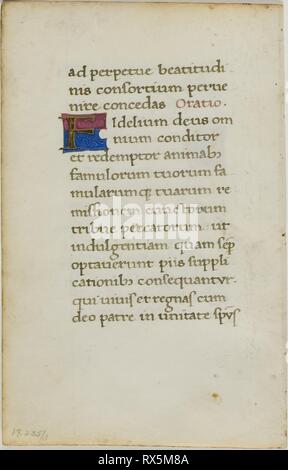 ad perpetue beatitudi
nis consortium perve
nire concedas Oratio.
Fidelium deus om
nium conditor
et redemptor animab3
famulorum tuorum fa
mularumq3 tuarum re
missionem cunctorum
tribue peccatorum ut
indulgentiam quam sep
optaverunt piis suppli
cationib3 consequantur.
qui vivis et regnas cum
deo patre in unitate spūs
19.235/1
alamy
Image ID: RX5M8A
www.alamy.com